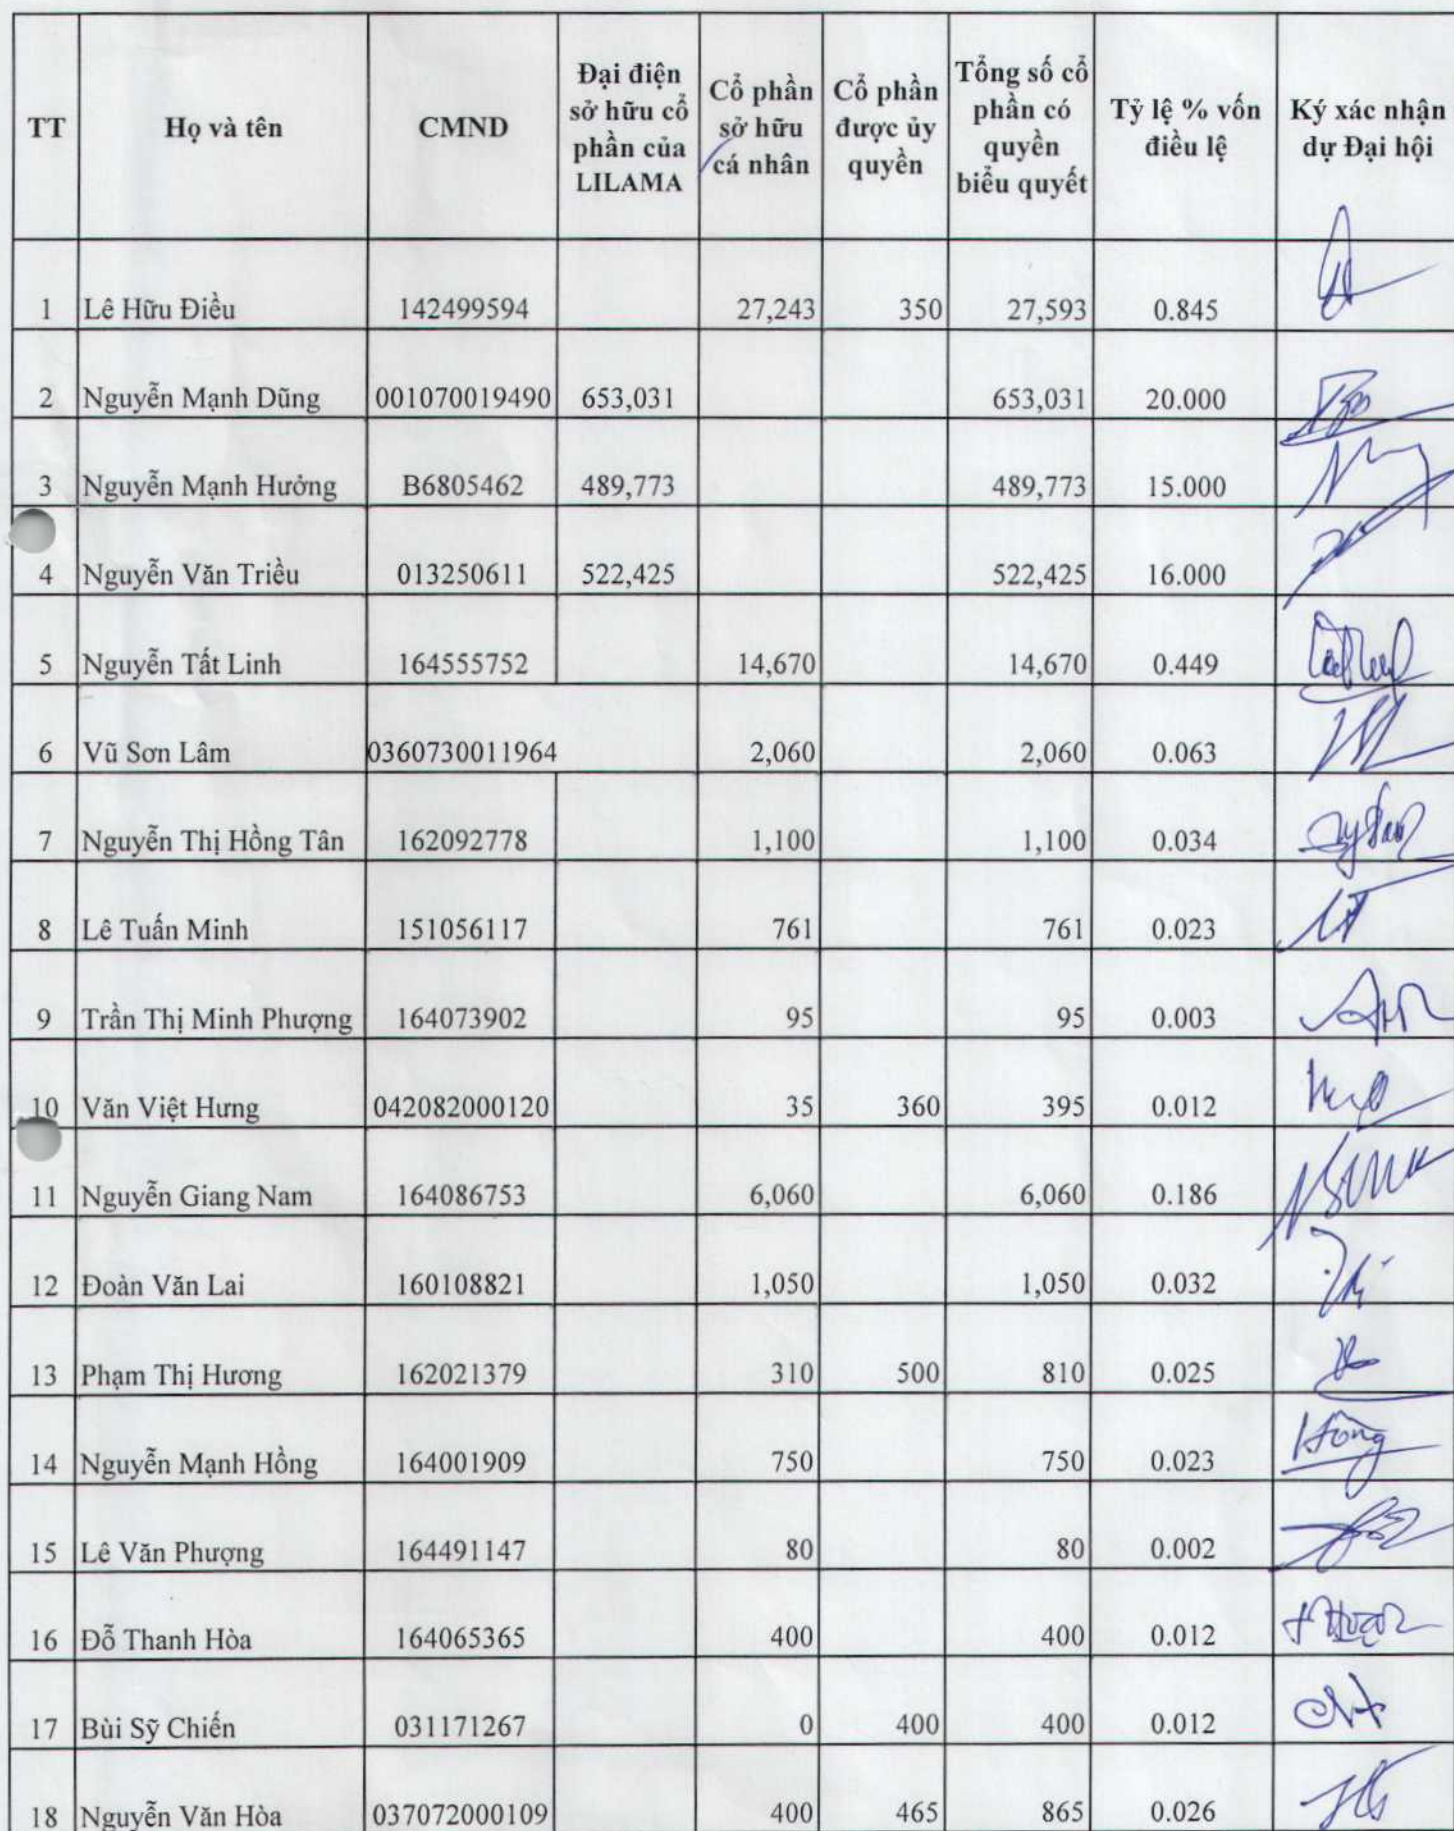 TT Họ và tên CMND Đại điện sở hữu cổ phần của LILAMA Cổ phần sở hữu cá nhân Cổ phần được ủy quyền Tổng số cổ phần có quyền biểu quyết Tỷ lệ % vốn điều lệ Ký xác nhận dự Đại hội
1 Lê Hữu Điều 142499594 27,243 350 27,593 0.845
2 Nguyễn Mạnh Dũng 001070019490 653,031 653,031 20.000
3 Nguyễn Mạnh Hưởng B6805462 489,773 489,773 15.000
4 Nguyễn Văn Triều 013250611 522,425 522,425 16.000
5 Nguyễn Tất Linh 164555752 14,670 14,670 0.449
6 Vũ Sơn Lâm 0360730011964 2,060 2,060 0.063
7 Nguyễn Thị Hồng Tân 162092778 1,100 1,100 0.034
8 Lê Tuấn Minh 151056117 761 761 0.023
9 Trần Thị Minh Phượng 164073902 95 95 0.003
10 Văn Việt Hưng 042082000120 35 360 395 0.012
11 Nguyễn Giang Nam 164086753 6,060 6,060 0.186
12 Đoàn Văn Lai 160108821 1,050 1,050 0.032
13 Phạm Thị Hương 162021379 310 500 810 0.025
14 Nguyễn Mạnh Hồng 164001909 750 750 0.023 Hồng
15 Lê Văn Phượng 164491147 80 80 0.002
16 Đỗ Thanh Hòa 164065365 400 400 0.012
17 Bùi Sỹ Chiến 031171267 0 400 400 0.012
18 Nguyễn Văn Hòa 037072000109 400 465 865 0.026